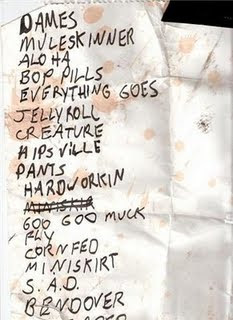 DAMES
MULESKINNER
ALOHA
BOP PILLS
EVERYTHING GOES
JELLYROLL
CREATURE
HIPSVILLE
PANTS
HARDWORKIN
MINISKIR
GOO GOO MUCK
FLY
CORNFED
MINISKIRT
S.A.D.
BENDOVER